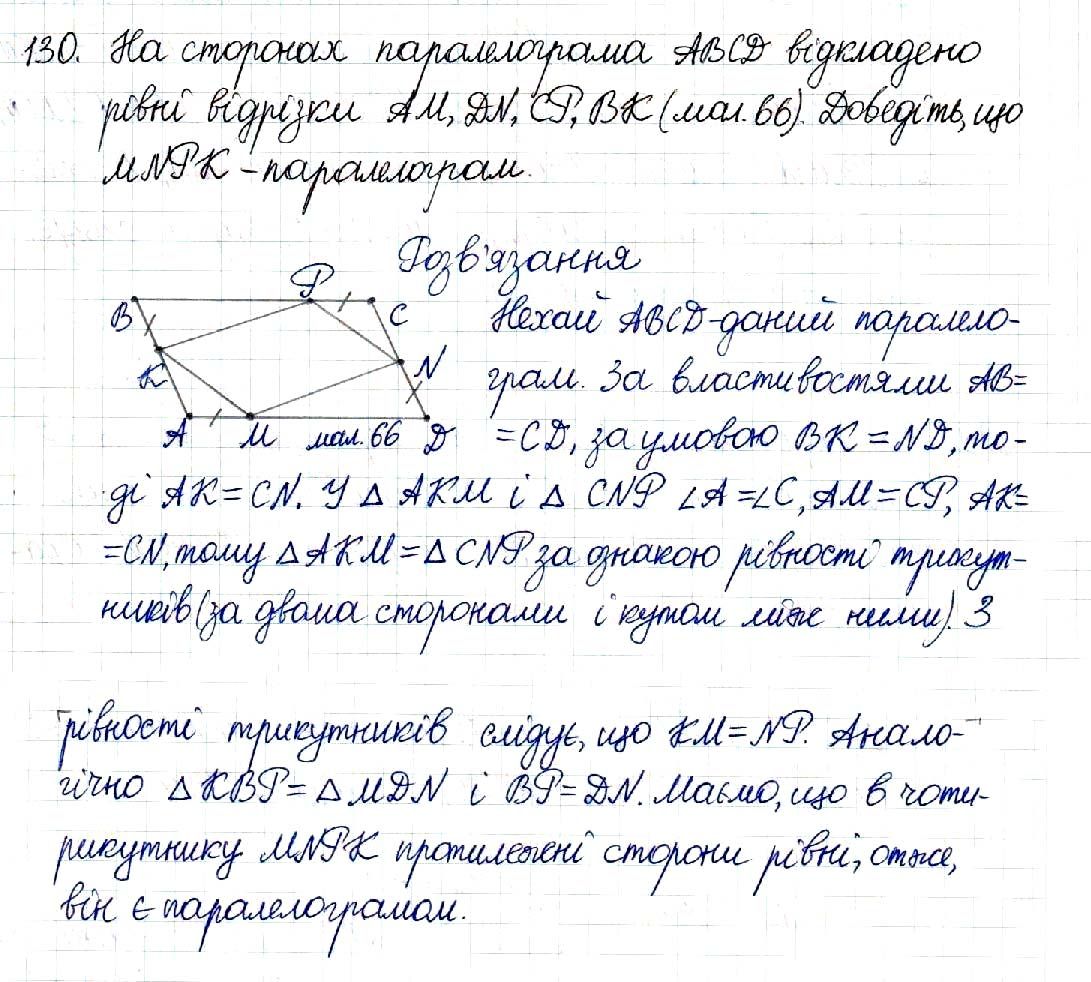 130. На сторонах паралелограма ABCD відкладено
рівні відрізки AM, DN, CP, BK (мал. 66). Доведіть, що
MNPK - паралелограм.
Розв'язання
B
P
C
K
N
A
M
мал. 66
D
Нехай ABCD - даний паралело-
грам. За властивостями AB=
=CD, за умовою BK = ND, то-
ді AK = CN. У △ AKM і △ CNP ∠A =∠C, AM = CP, AK=
=CN, тому △ AKM = △ CNP за ознакою рівності трикут-
ників (за двома сторонами і кутом між ними). З
рівності трикутників слідує, що KM = NP. Анало-
гічно △ KBP = △ MDN і BP = DN. Маємо, що в чоти-
рикутнику MNPK протилежні сторони рівні, отже,
він є паралелограмом.